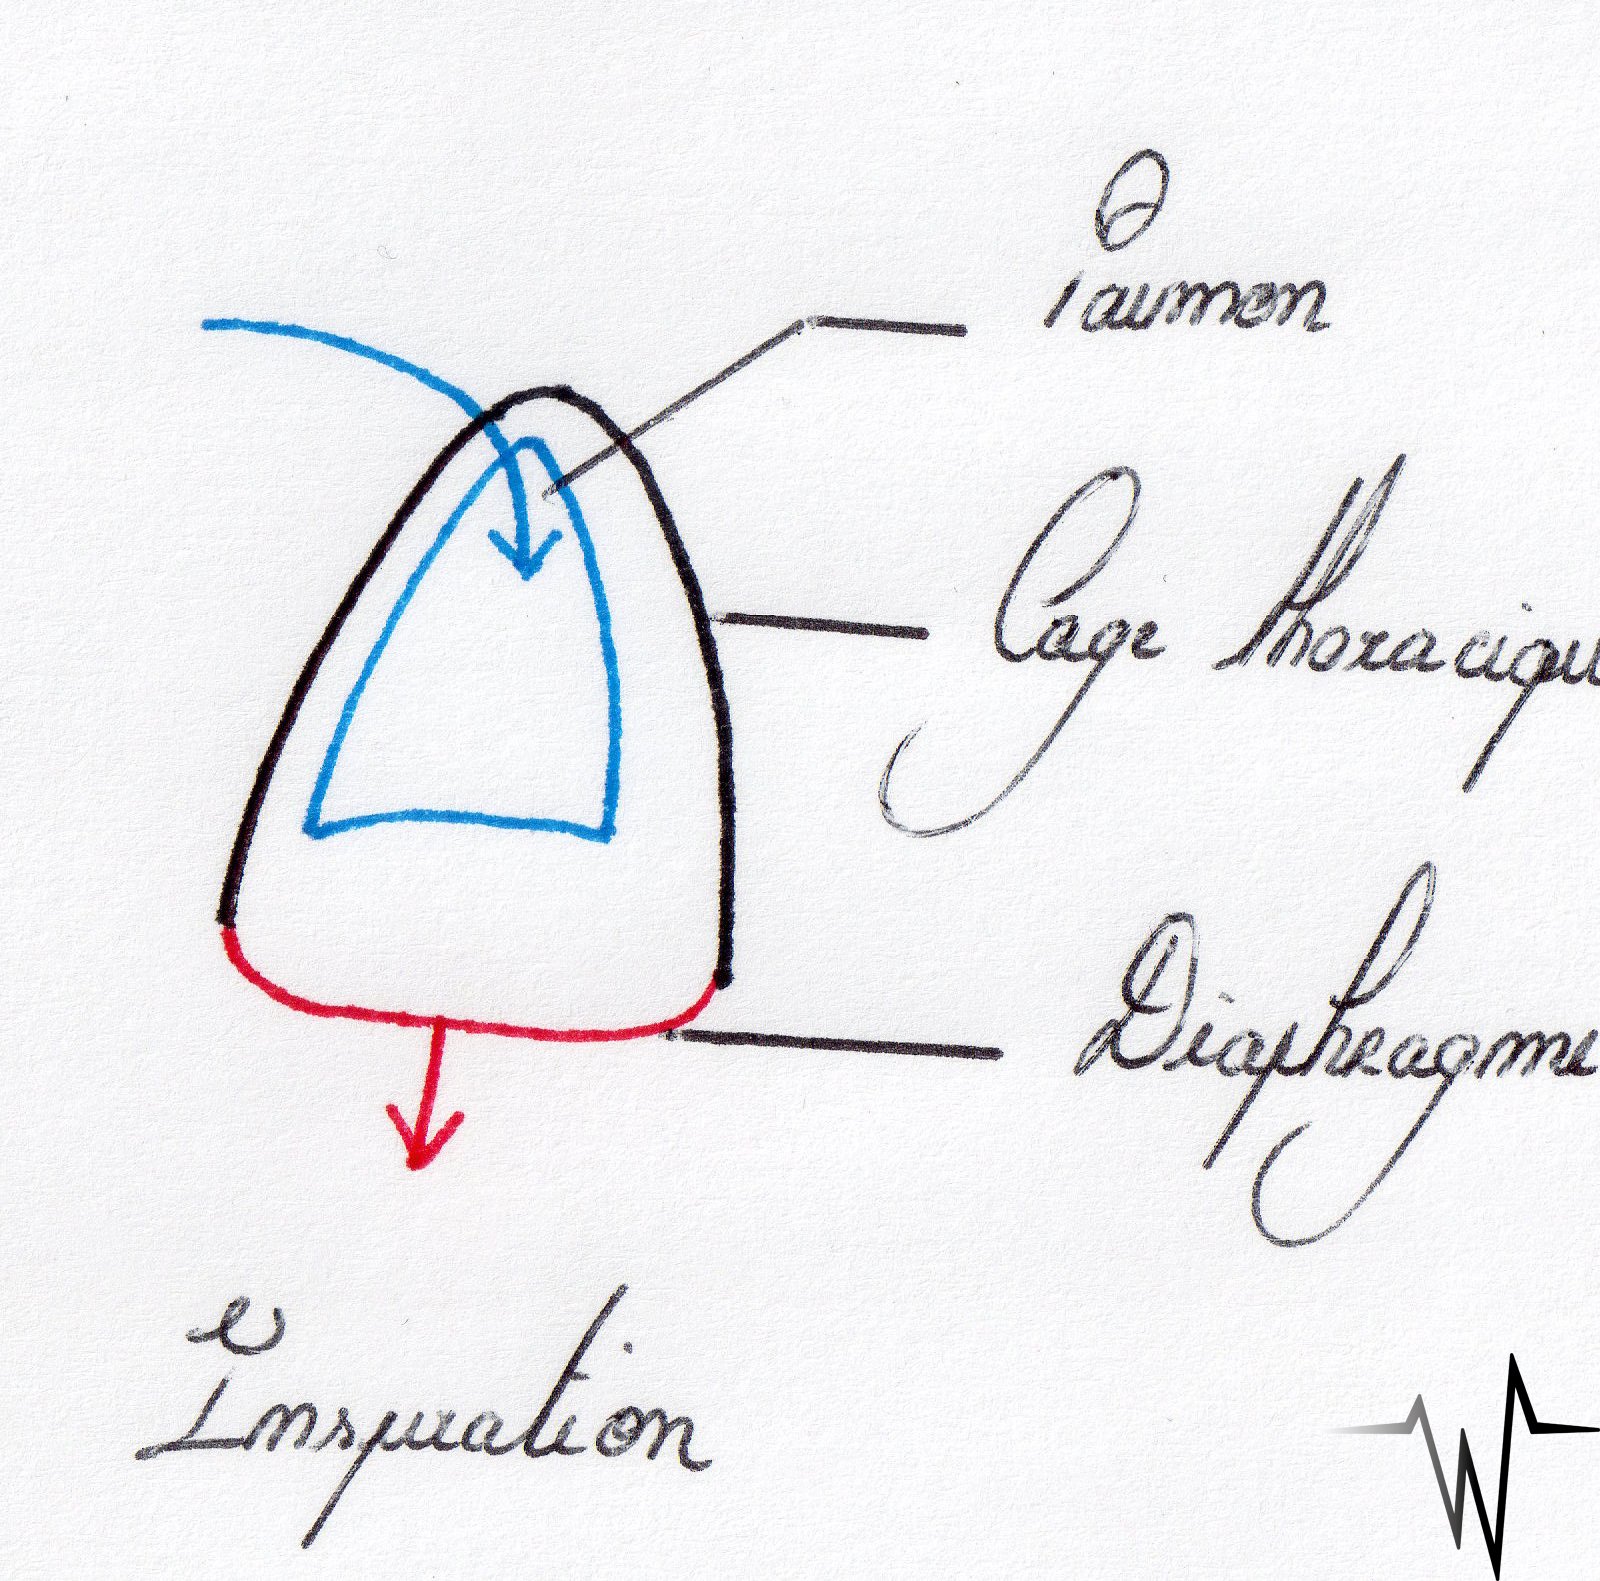 Poumon
Cage thoraciqu
Diaphragme
Inspiration